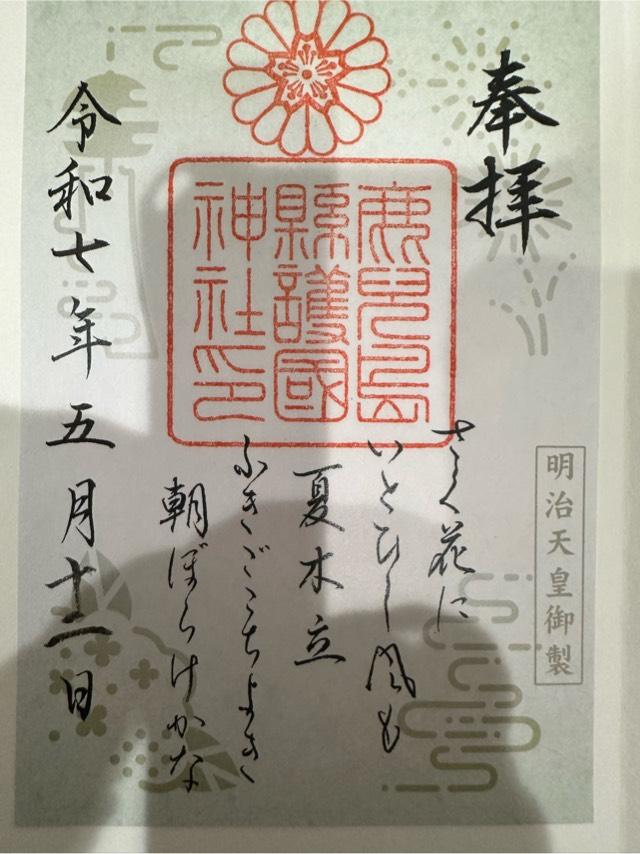 奉拝
鹿児島
縣護國
神社印
明治天皇御製
さく花に
いとひし風も
夏木立
ふきごこちよき
朝ぼらけかな
令和七年五月十二日